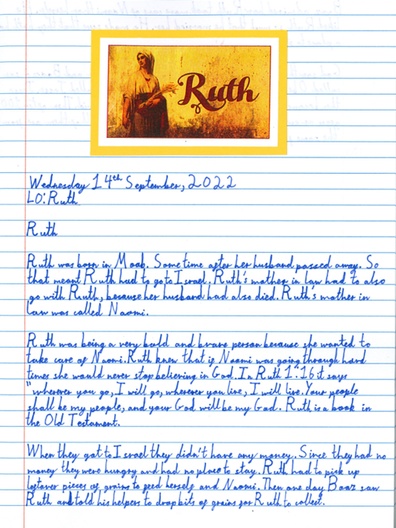 Ruth
Wednesday 14th September, 2022
LO: Ruth
Ruth
Ruth was born in Moab. Some time after her husband passed away. So
that meant Ruth had to go to Israel. Ruth's mother in law had to also
go with Ruth, because her husband had also died. Ruth's mother in
law was called Naomi.
Ruth was being a very bold and brave person because she wanted to
take care of Naomi. Ruth knew that if Naomi was going through hard
times she would never stop believing in God. In Ruth 1:16 it says
"wherever you go, I will go, wherever you live, I will live. Your people
shall be my people, and your God will be my God. Ruth is a book in
the Old Testament.
When they got to Israel they didn't have any money. Since they had no
money they were hungry and had no place to stay. Ruth had to pick up
leftover pieces of grains to feed herself and Naomi. Then one day Boaz saw
Ruth and told his helpers to drop bits of grains for Ruth to collect.